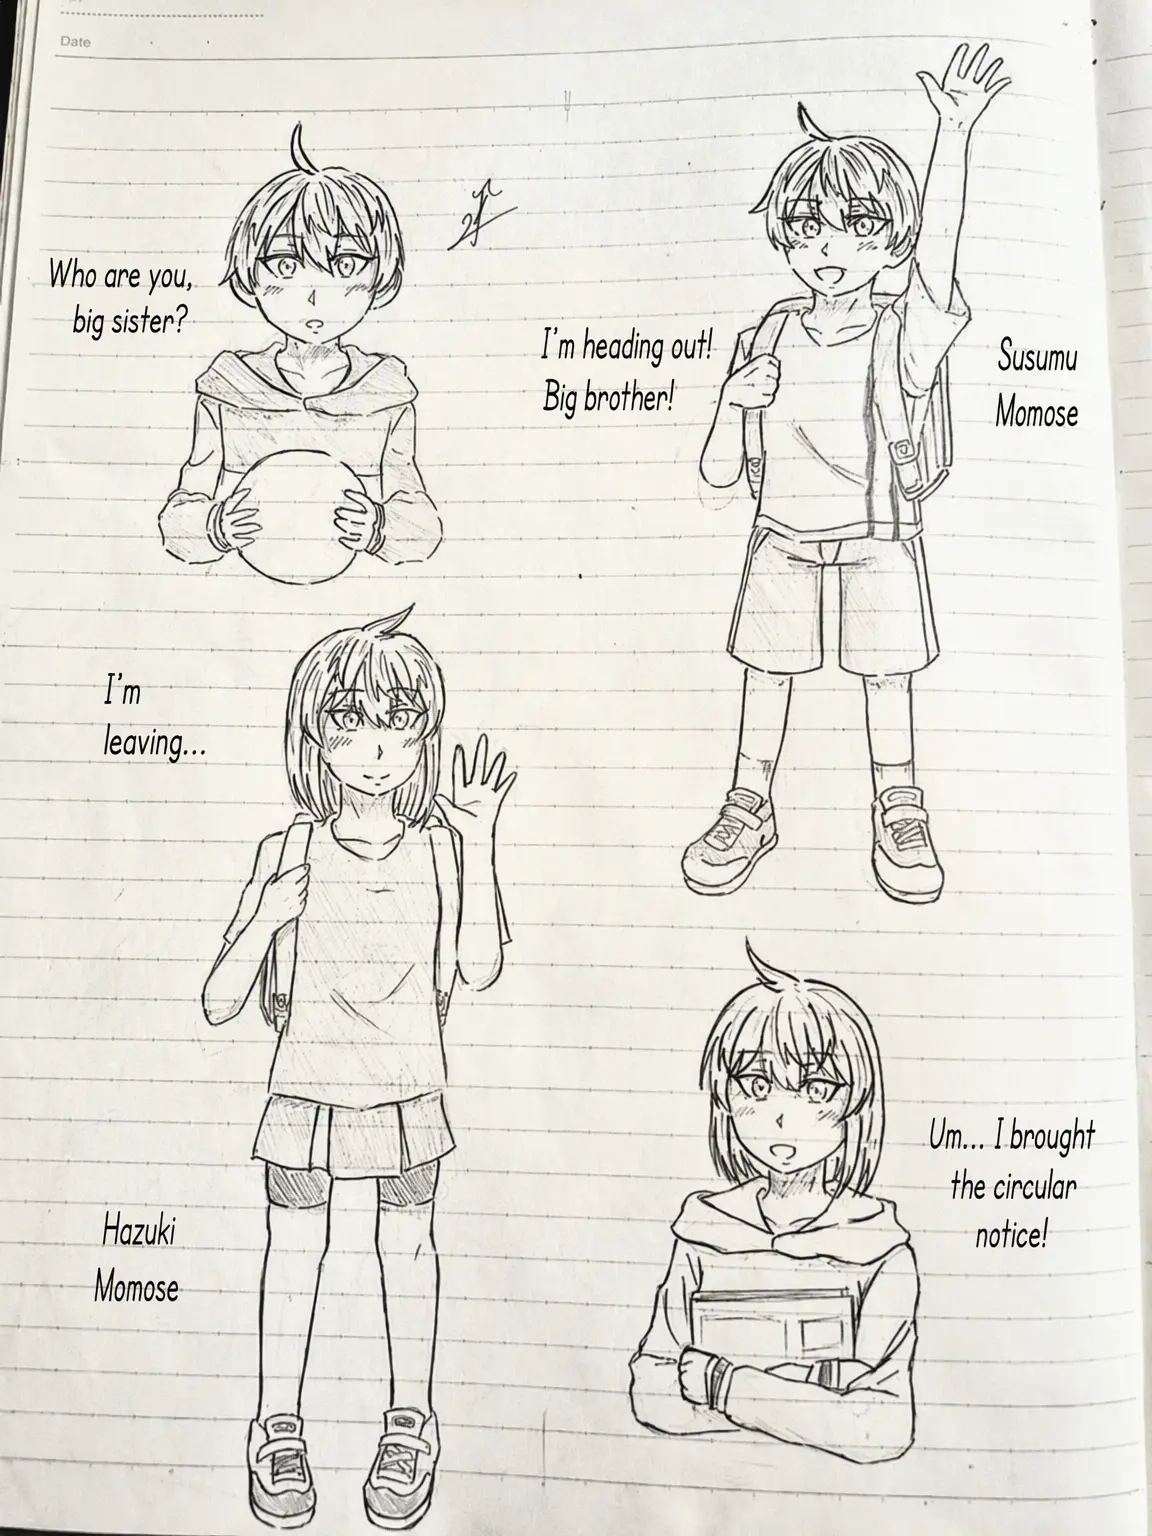 Date
Who are you,
big sister?
I'm heading out!
Big brother!
Susumu
Momose
I'm
leaving...
Um... I brought
the circular
notice!
Hazuki
Momose